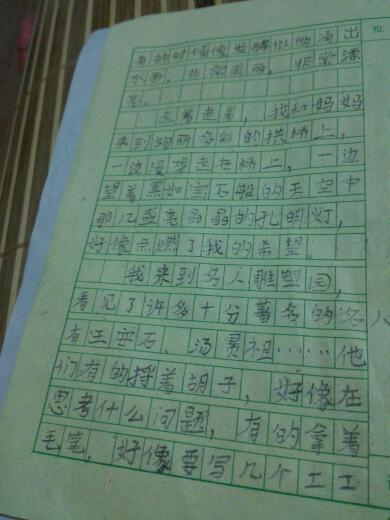 有的时候像发脾似的涌出
水面，非常美丽，非常漂
亮。
走着走着，我和妈妈
来到绚丽多彩的拱桥上，
一边漫步走在桥上，一边
望着黑如宝石般的天空中
那几盏亮晶晶的孔明灯，
好像点燃了我的希望。
我来到名人雕塑园，
看见了许多十分著名的名
有王安石、汤显祖……他
们有的捋着胡子，好像在
思考什么问题，有的拿着
毛笔，好像要写几个工工
批